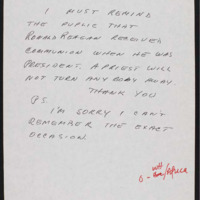 I MUST REMIND
THE PUBLIC THAT
RONALD REAGAN RECEIVED
COMMUNION WHEN HE WAS
PRESIDENT. A PRIEST WILL
NOT TURN ANY BODY AWAY
THANK YOU
P.S.
I'M SORRY I CAN'T
REMEMBER THE EXACT
OCCASION